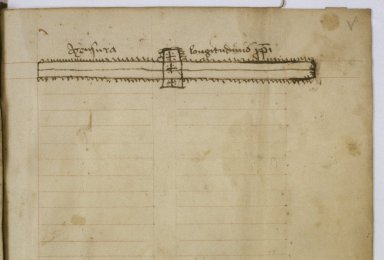 Mensura longitudinis xp̄i